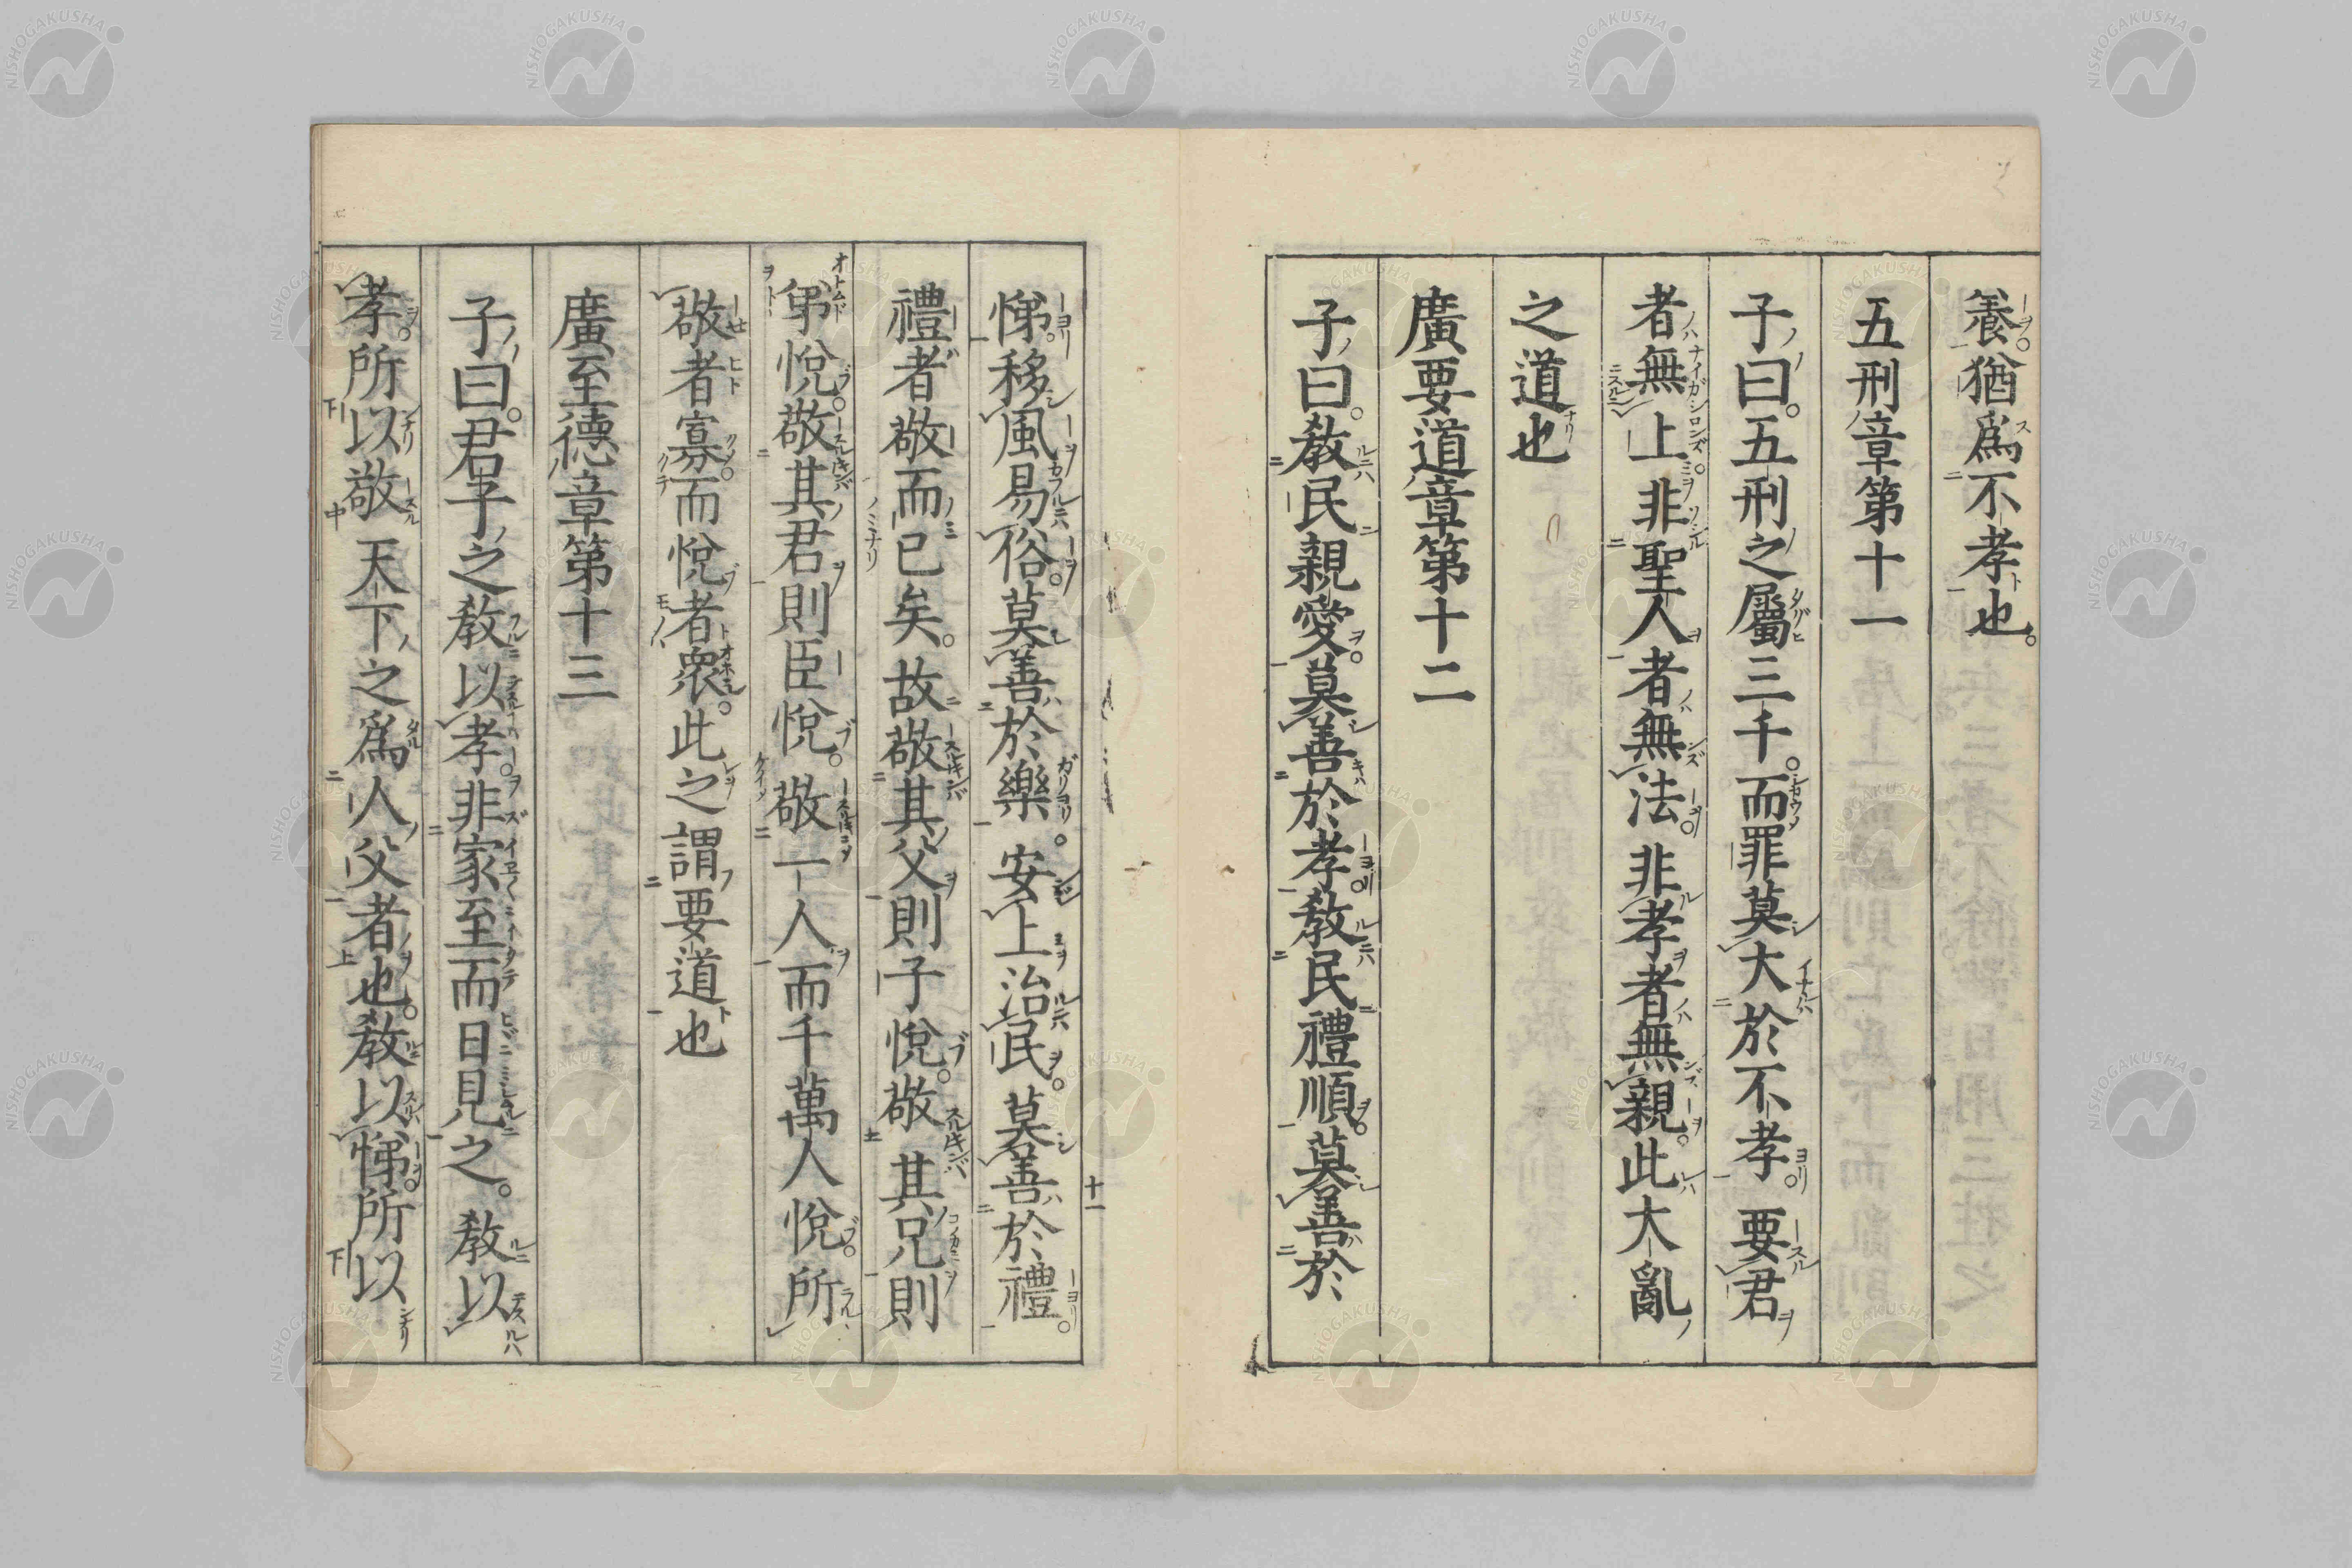 養猶爲不孝也。
五刑章第十一
子曰。五刑之屬三千。而罪莫大於不孝。要君
者無上。非聖人者無法。非孝者無親。此大亂
之道也
廣要道章第十二
子曰。教民親愛。莫善於孝。教民禮順。莫善於
悌。移風易俗。莫善於樂。安上治民。莫善於禮。
禮者敬而已矣。故敬其父則子悅。敬其兄則
弟悅。敬其君則臣悅。敬一人而千萬人悅。所
敬者寡。而悅者衆。此之謂要道也
廣至德章第十三
子曰。君子之教以孝。非家至而日見之。教以
孝。所以敬天下之爲人父者也。教以悌。所以
十一
NISHOGAKUSHA